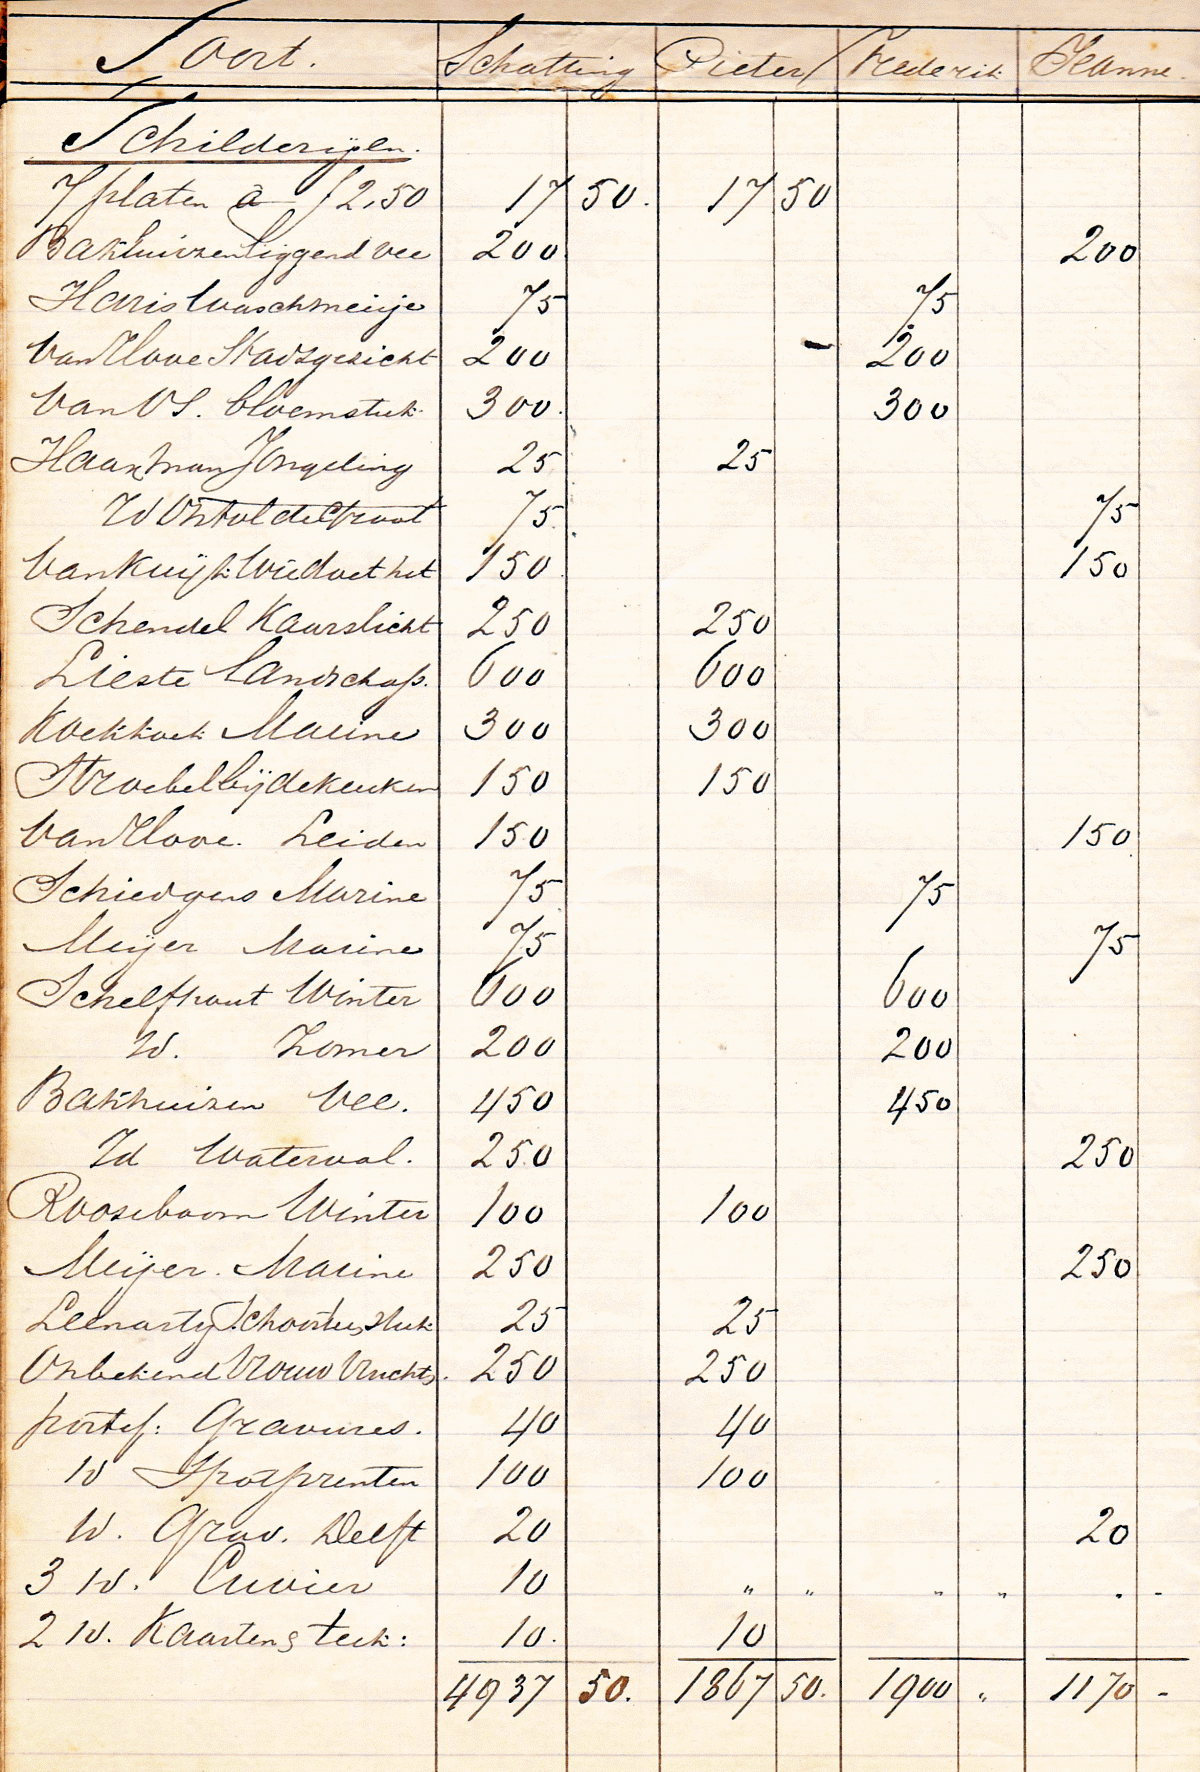 Soort. Schatting Pieter Frederik Jeanne.
Schilderijen.
7 platen à f 2,50 17 50. 17 50
Bakhuizen liggend vee 200 200
Haris Waschmeisje 75 75
Van Hove Stadsgezicht 200 - 200
Van OS. bloemstuk. 300. 300
Haaxman Jongeling 25 25
Id 75. 75
Van Kuijk 150. 150
Schendel Kaarslicht 250 250
Lieste landschap. 600 600
Koekkoek Marine 300 300
Stroebel bij de keuken 150 150
Van Hove. Leiden 150 150
Schiedges Marine 75 75
Meijer Marine 75 75
Schelfhout Winter 600 600
Id. Zomer 200 200
Bakhuizen Vee. 450 450
Id Waterval. 250 250
Rooseboom Winter 100 100
Meijer. Marine 250 250
Leenarts Schoorsteenstuk 25 25
Onbekend Vrouw Vrucht 250 250
portef: Gravures. 40 40
id Spotprenten 100 100
id. Grav. Delft 20 20
3 id. Cuvier 10 " " " " . -
2 id. Kaarten & teek: 10. 10
4937 50. 1867 50. 1900 " 1170 -